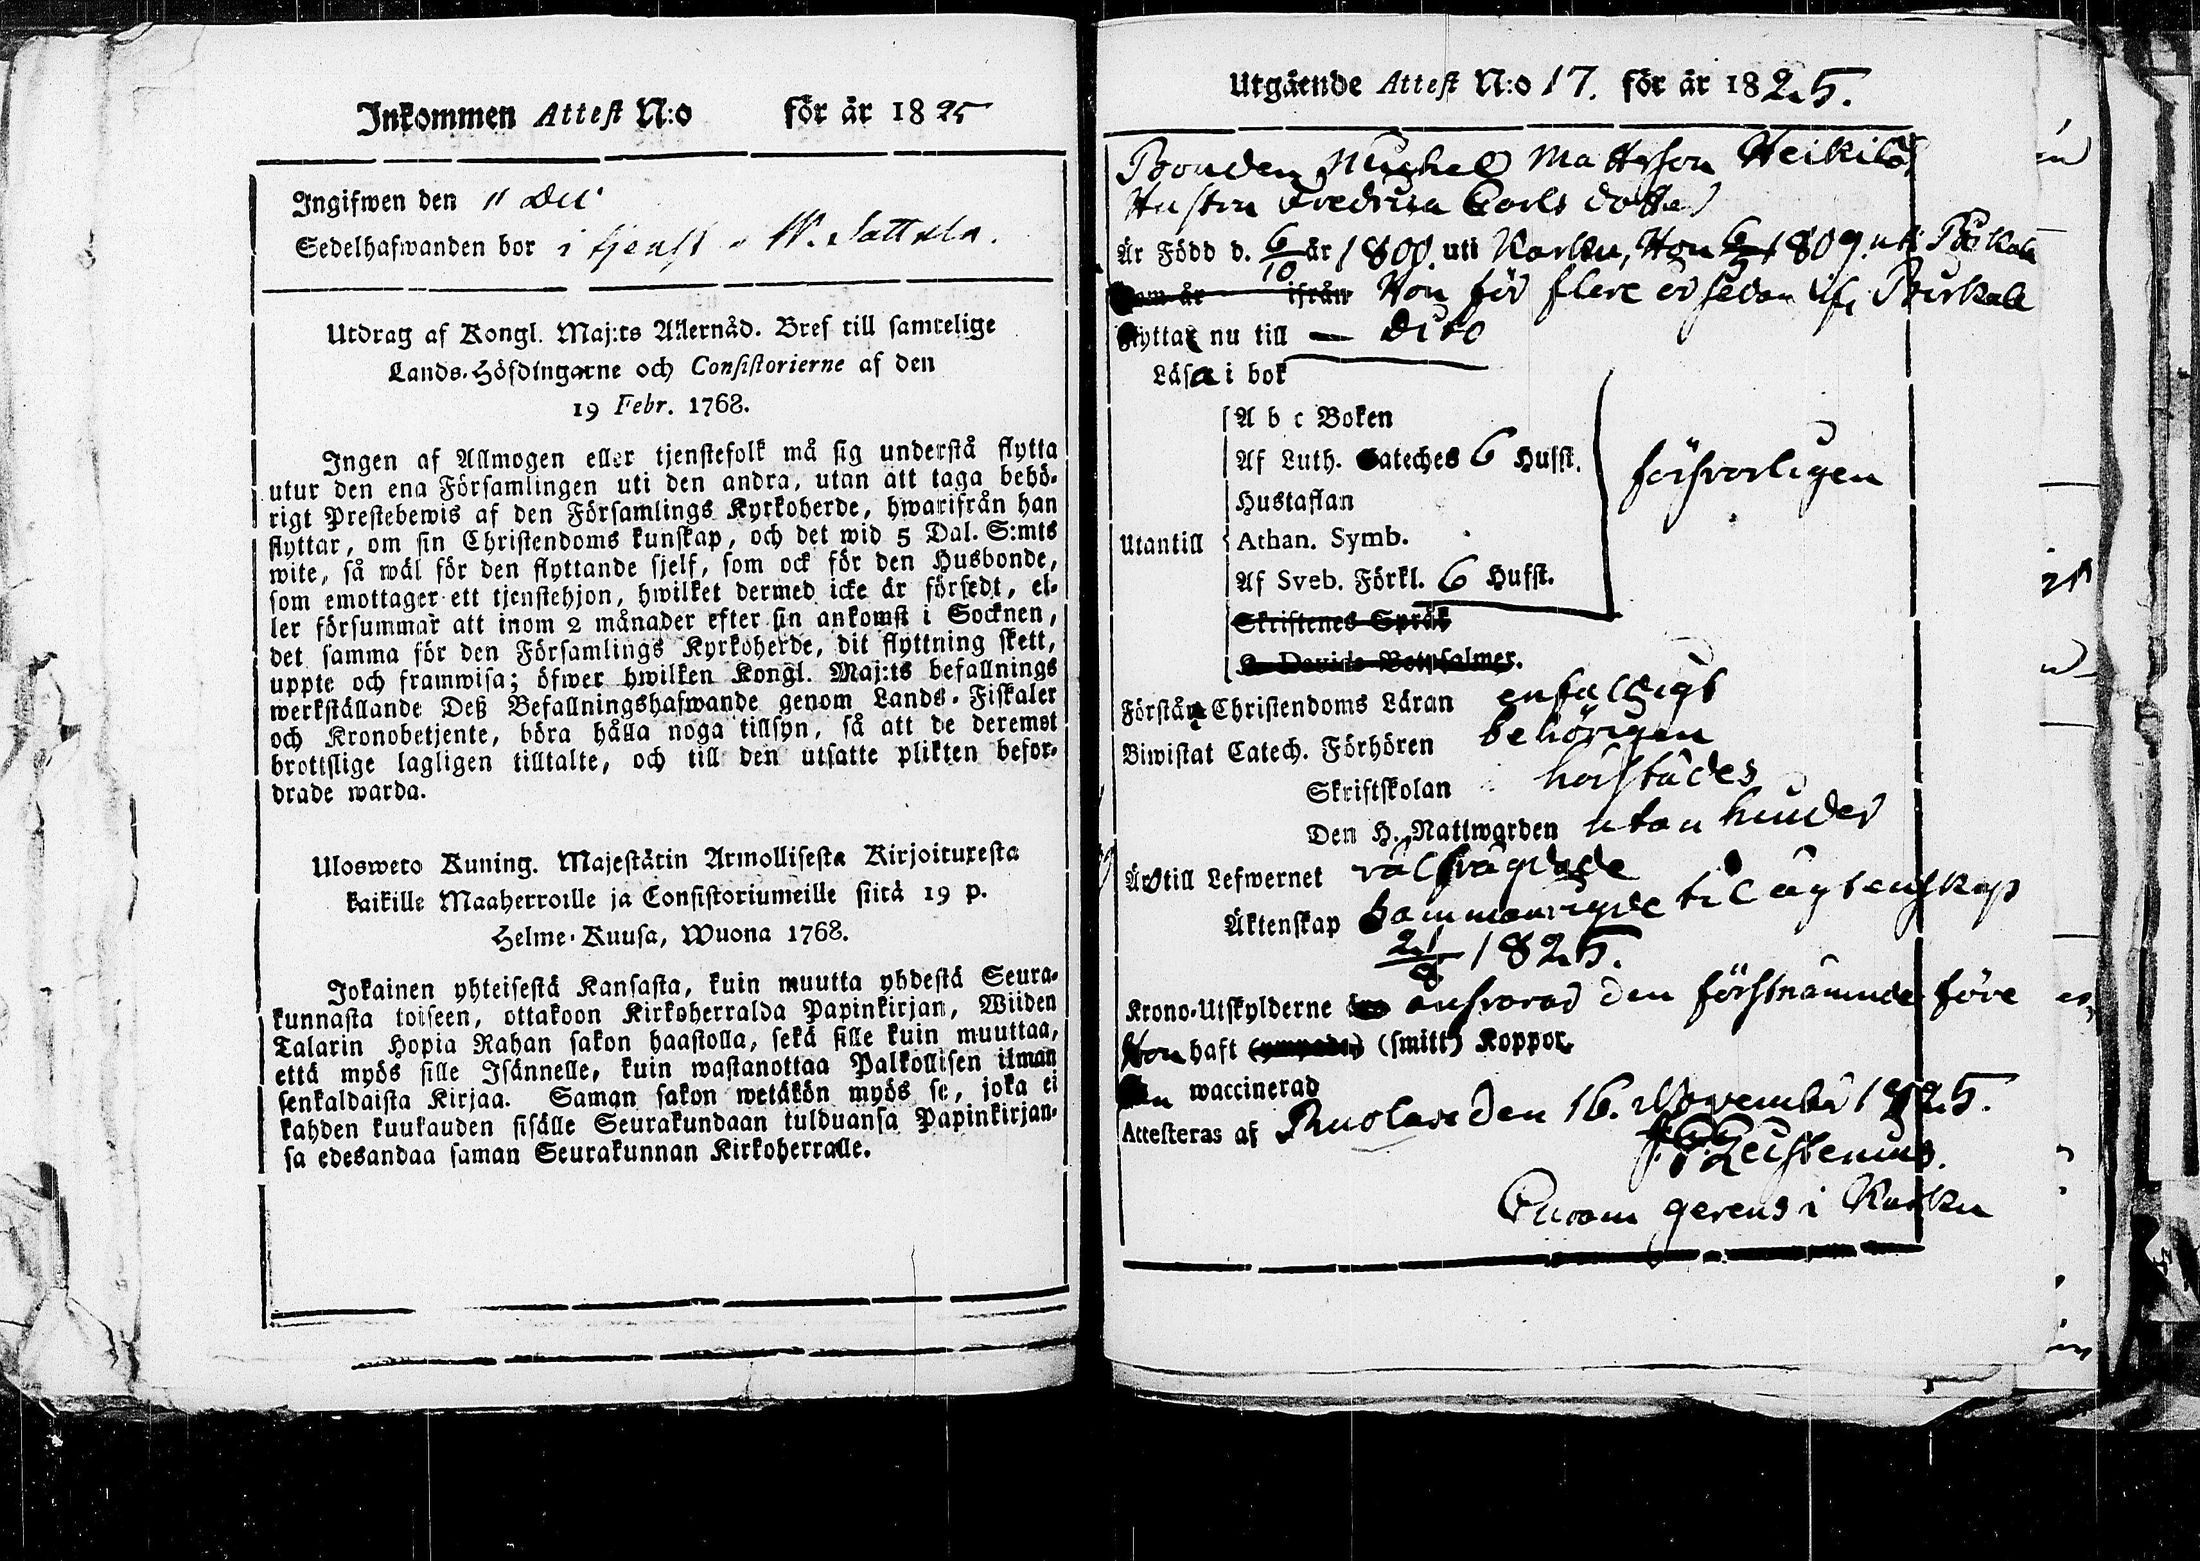 Inkommen Attest N:o för år 1825
Ingifwen den 11 Dec
Sedelhafwanden bor i tjenst W. Sattala.
Utdrag af Kongl. Maj:ts Allernåd. Bref till samtelige
Lands-Höfdingarne och Consistorierne af den
19 Febr. 1768.
Ingen af Allmogen eller tjenstefolk må sig understå flytta
utur den ena Församlingen uti den andra, utan att taga behö-
rigt Prestebewis af den Församlings Kyrkoherde, hwarifrån han
flyttar, om sin Christendoms kunskap, och det wid 5 Dal. S:mts
wite, så wäl för den flyttande sjelf, som ock för den Husbonde,
som emottager ett tjenstehjon, hwilket dermed icke är försedt, el-
ler försummar att inom 2 månader efter sin ankomst i Socknen,
det samma för den Församlings Kyrkoherde, dit flyttning skett,
uppte och framwisa; öfwer hwilken Kongl. Maj:ts befallnings
werkställande Deß Befallningshafwande genom Lands-Fiskaler
och Kronobetjente, böra hålla noga tillsyn, så att de deremot
brottslige lagligen tilltalte, och till den utsatte plikten befor-
drade warda.
Ulosweto Kuning. Majestätin Armollisesta Kirjoituxesta
kaikille Maaherroille ja Consistoriumeille siitä 19 p.
Helme-Kuusa, Wuona 1768.
Jokainen yhteisestä Kansasta, kuin muutta yhdestä Seura-
kunnasta toiseen, ottakoon Kirkoherralda Papinkirjan, Wiiden
Talarin Hopia Rahan sakon haastolla, sekä sille kuin muuttaa,
että myös sille Isännelle, kuin wastanottaa Palkollisen ilman
senkaldaista Kirjaa. Saman sakon wetäkön myös se, joka ei
kahden kuukauden sisälle Seurakundaan tulduansa Papinkirjan-
sa edesandaa saman Seurakunnan Kirkoherralle.
Utgående Attest N:o 17. för år 1825.
Bonden Michel Mattsson Heikilä
Hustru Fredrica Carls dotter
Är Född d. 6/10 år 1800. uti Karku, Hon 1809. uti Birkala
Kom år ifrån Hon för flere år sedan if. Birkala
flyttar nu till — dito
Läsa i bok
A b c Boken
Af Luth. Cateches 6 Hufst.
Hustaflan
försvarligen
Utantill Athan. Symb.
Af Sveb. Förkl. 6 Hufst.
Skriftenes Språk
K. Davids Botpsalmer.
Förstår Christendoms Läran enfaldigt
Biwistat Catech. Förhören behörigen
Skriftskolan härstädes
Den H. Nattwarden utan hinder
Är till Lefwernet välfrägdade
Äktenskap Sammanvigde til ägtenskap
21/8 1825.
Krono-Utskylderne ansvarar den förstnämnde före
Hon haft (ympade) (smitt) Koppor
waccinerad
Attesteras af den 16. November 1825.
Leistenius.
Curam gerens i Karku